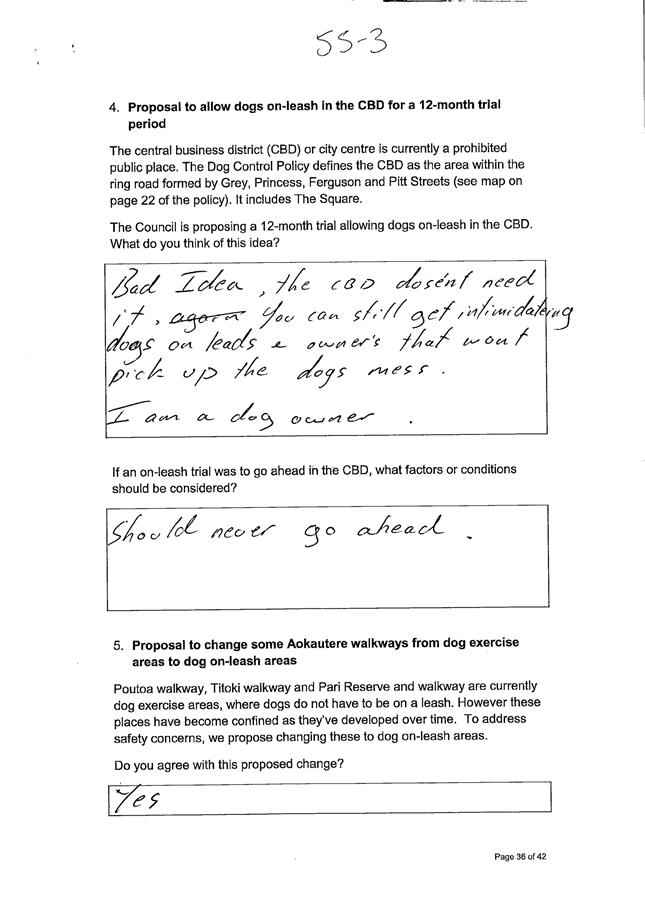 55-3
4. Proposal to allow dogs on-leash in the CBD for a 12-month trial
period
The central business district (CBD) or city centre is currently a prohibited
public place. The Dog Control Policy defines the CBD as the area within the
ring road formed by Grey, Princess, Ferguson and Pitt Streets (see map on
page 22 of the policy). It includes The Square.
The Council is proposing a 12-month trial allowing dogs on-leash in the CBD.
What do you think of this idea?
Bad Idea, the CBD dosent need
it, again You can still get intimidateing
dogs on leads & owner's that wont
pick up the dogs mess.
I am a dog owner.
If an on-leash trial was to go ahead in the CBD, what factors or conditions
should be considered?
Should never go ahead.
5. Proposal to change some Aokautere walkways from dog exercise
areas to dog on-leash areas
Poutoa walkway, Titoki walkway and Pari Reserve and walkway are currently
dog exercise areas, where dogs do not have to be on a leash. However these
places have become confined as they've developed over time. To address
safety concerns, we propose changing these to dog on-leash areas.
Do you agree with this proposed change?
Yes
Page 36 of 42